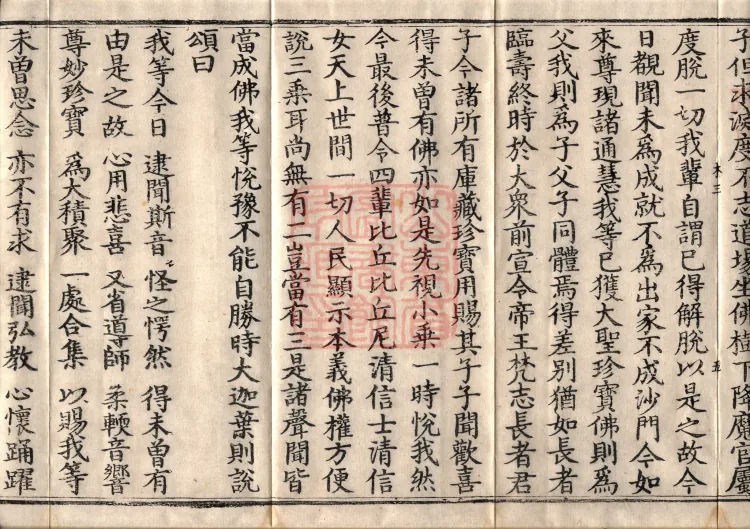 子但求滅度不志道場坐佛樹下降魔官屬
度脫一切我輩自謂已得解脫以是之故今
日觀聞未為成就不為出家不成沙門今如
來尊現諸通慧我等已獲大聖珍寶佛則為
父我則為子父子同體焉得差別猶如長者
臨壽終時於大衆前宣令帝王梵志長者君
子今諸所有庫藏珍寶用賜其子子聞歡喜
得未曾有佛亦如是先視小乗一時悅我然
今最後普令四輩比丘比丘尼清信士清信
女天上世間一切人民顯示本義佛權方便
說三乗耳尚無有二豈當有三是諸聲聞皆
當成佛我等悅豫不能自勝時大迦葉則說
頌曰
我等今日 逮聞斯音 怪之愕然 得未曾有
由是之故 心用悲喜 又省導師 柔軟音響
尊妙珍寶 為大積聚 一處合集 以賜我等
未曾思念 亦不有求 逮聞弘教 心懷踊躍